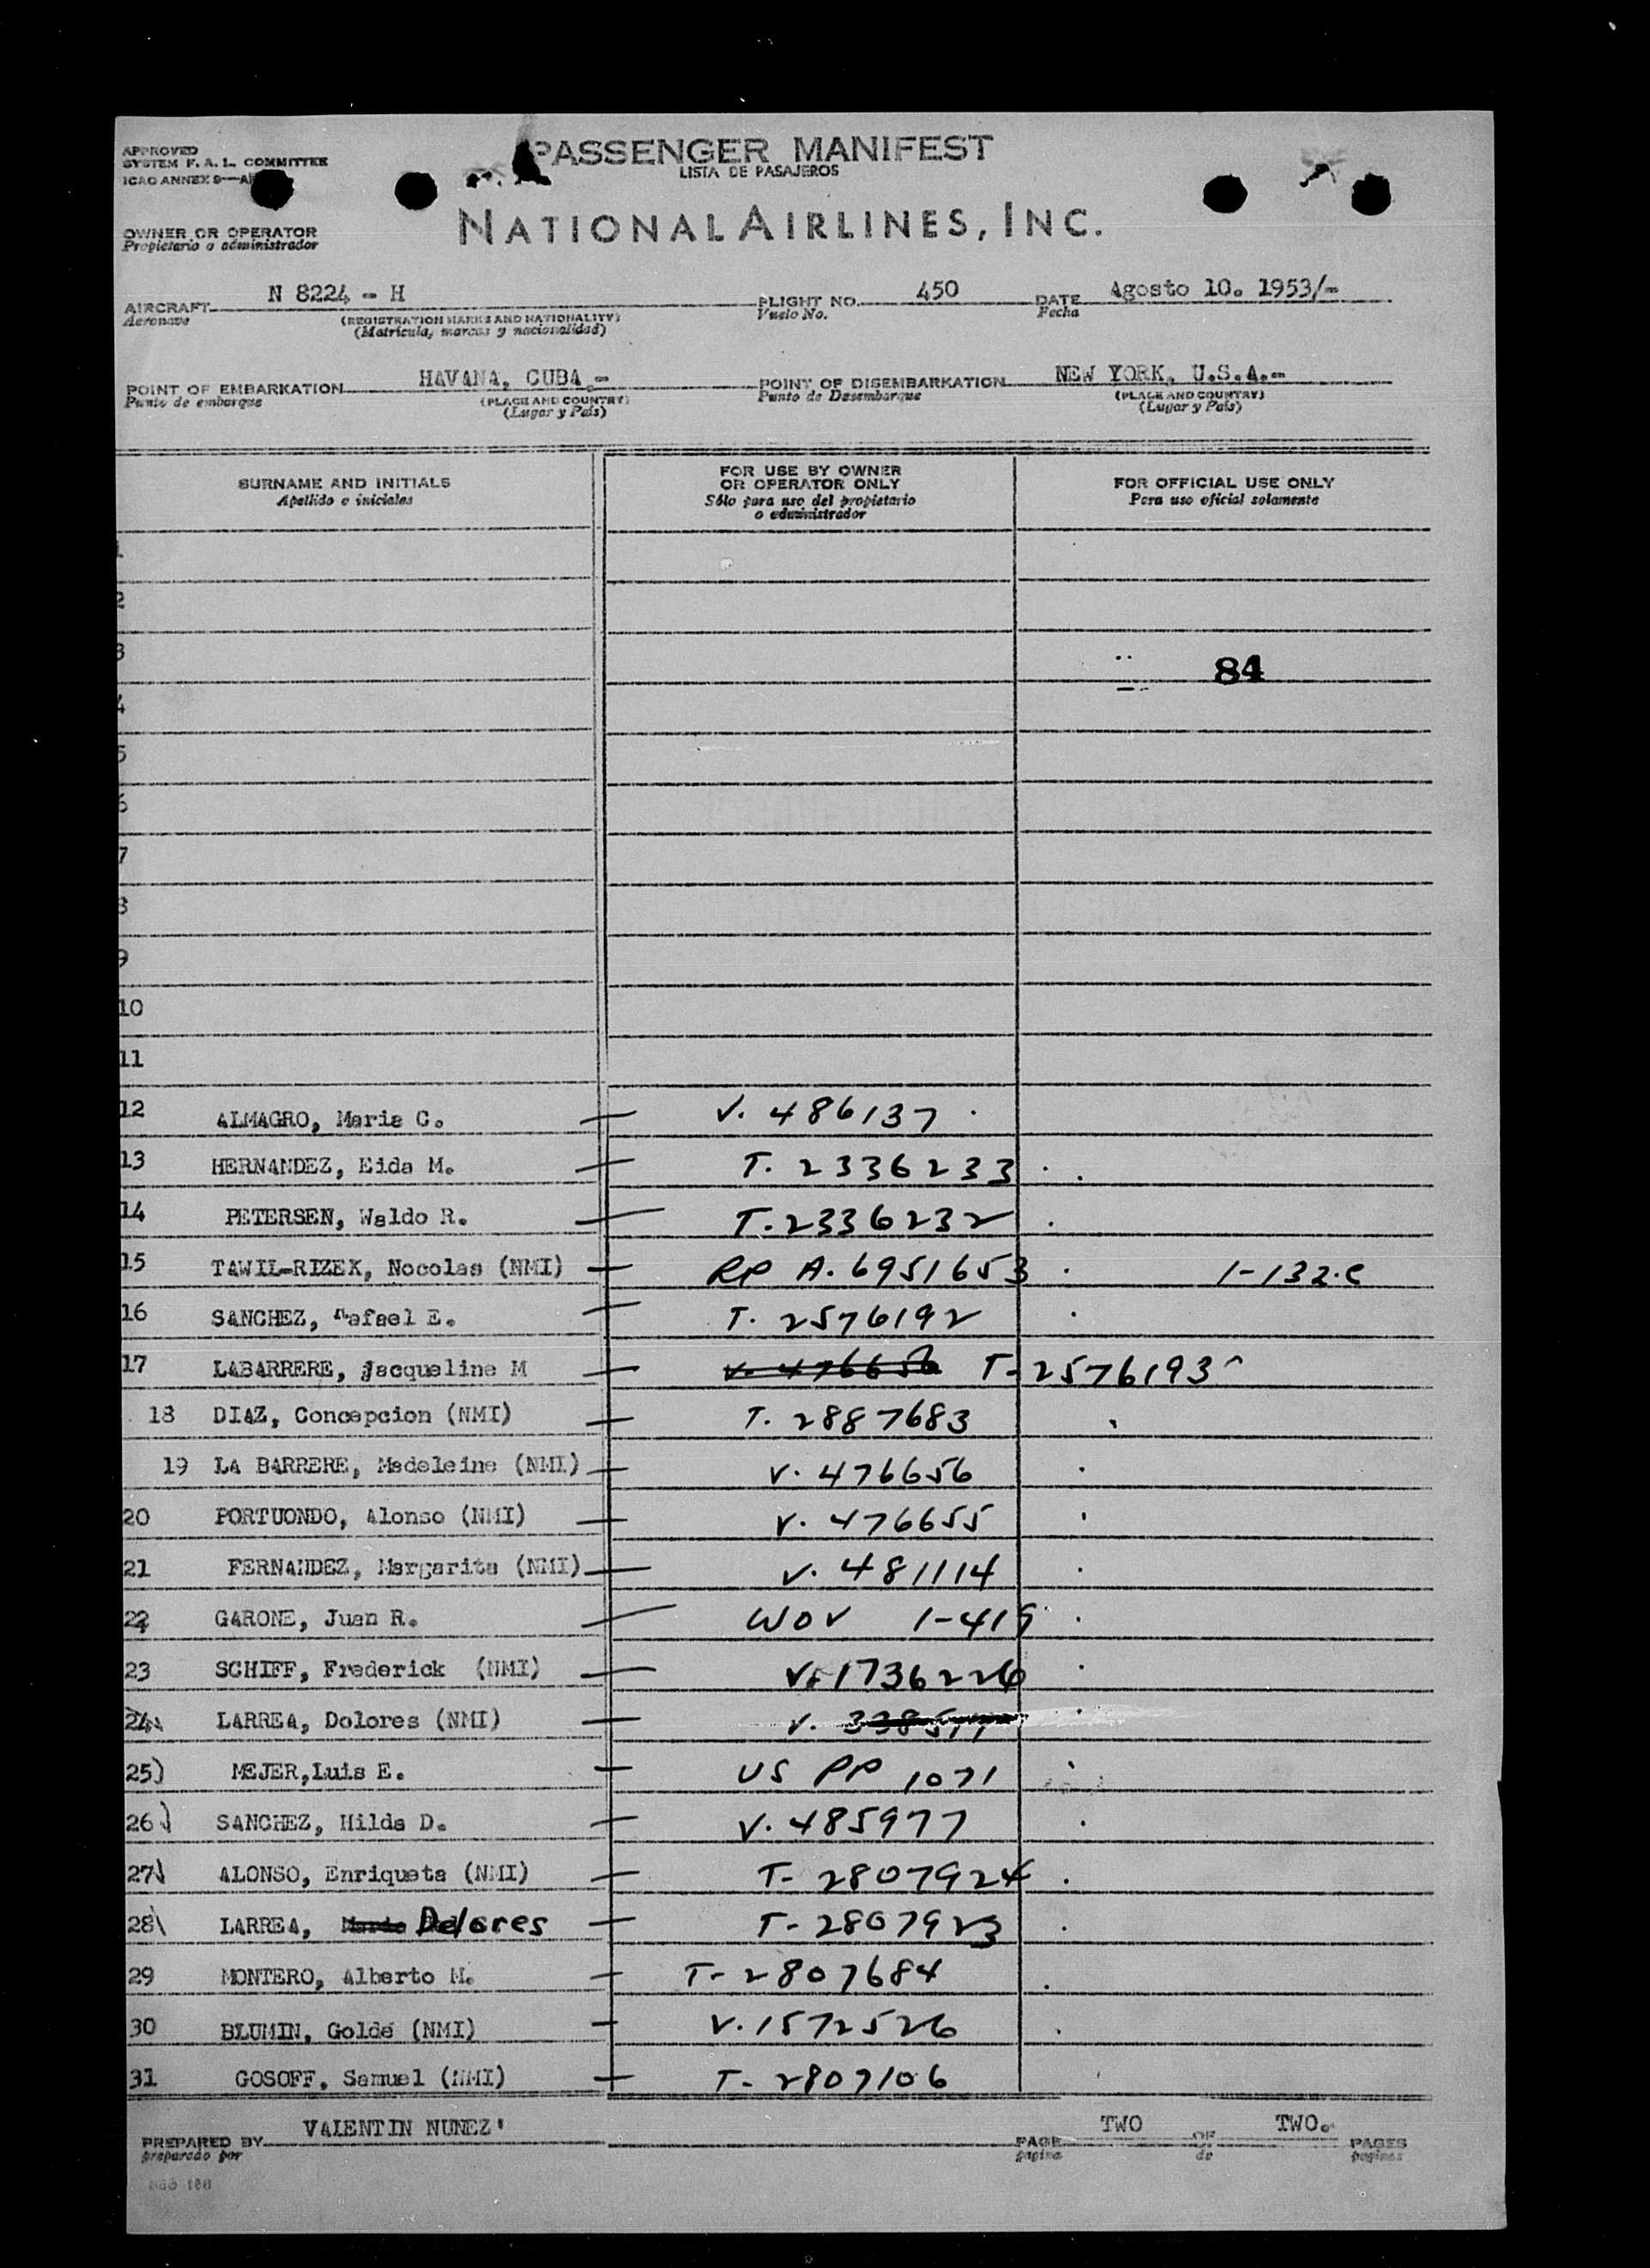 APPROVED
SYSTEM F. A. L. COMMITTEE
ICAO ANNEX 9—
PASSENGER MANIFEST
LISTA DE PASAJEROS
OWNER OR OPERATOR
Propietario o administrador
NATIONAL AIRLINES, INC.
AIRCRAFT N 8224 - H FLIGHT NO. 450 DATE Agosto 10. 1953/-
Aeronave (REGISTRATION MARKS AND NATIONALITY) Vuelo No. Fecha
(Matrícula, marcas y nacionalidad)
POINT OF EMBARKATION HAVANA, CUBA.- POINT OF DISEMBARKATION NEW YORK, U.S.A.-
Punto de embarque (PLACE AND COUNTRY) Punto de Desembarque (PLACE AND COUNTRY)
(Lugar y País) (Lugar y País)
SURNAME AND INITIALS
Apellido e iniciales
FOR USE BY OWNER
OR OPERATOR ONLY
Sólo para uso del propietario
o administrador
FOR OFFICIAL USE ONLY
Para uso oficial solamente
1
2
3 84
4
5
6
7
8
9
10
11
12 ALMAGRO, Maria C. — V. 486137
13 HERNANDEZ, Eida M. — T. 2336233
14 PETERSEN, Waldo R. — T. 2336232
15 TAWIL-RIZEK, Nocolas (NMI) — RP A. 6951653 1-132.C
16 SANCHEZ, Rafael E. — T. 2576192
17 LABARRERE, Jacqueline M — V. 476656 T-2576193
18 DIAZ, Concepcion (NMI) — T. 2887683
19 LA BARRERE, Madeleine (NMI) — V. 476656
20 PORTUONDO, Alonso (NMI) — V. 476655
21 FERNANDEZ, Margarita (NMI) — V. 481114
22 GARONE, Juan R. — WOV 1-419
23 SCHIFF, Frederick (NMI) — V. 1736226
24 LARREA, Dolores (NMI) — V.
25) MEJER,Luis E. — US PP 1071
26) SANCHEZ, Hilda D. — V. 485977
27) ALONSO, Enriqueta (NMI) — T- 2807924
28) LARREA, Maria Dolores — T- 2807923
29 MONTERO, Alberto M. — T- 2807684
30 BLUMIN, Golde (NMI) — V. 1572526
31 GOSOFF, Samuel (NMI) — T- 2807106
PREPARED BY VALENTIN NUNEZ PAGE TWO OF TWO. PAGES
preparado por página de páginas